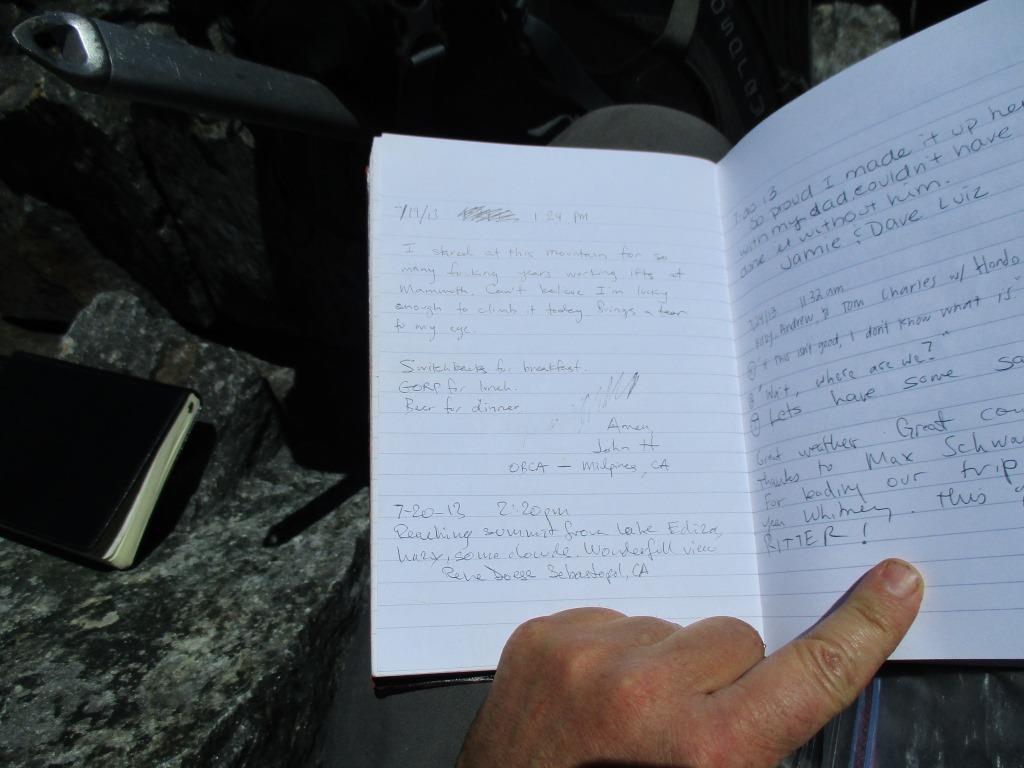 7/19/13 1:24 PM
I stared at this mountain for so
many fucking years working lifts at
Mammoth. Can't believe I'm lucky
enough to climb it today. Brings a tear
to my eye.
Switchbacks for breakfast.
GORP for lunch.
Beer for dinner
Amen
John H
ORCA — Midpines, CA
7-20-13 2:20pm
Reaching summit from Lake Ediza,
hazy, some clouds. Wonderfull view
Rene Sebastopol, CA
So proud I made it up here
with my dad couldn't have
done it without him.
Jamie & Dave Luiz
11:32 am
Andrew, & Tom Charles w/ Hondo
this isn't good, I don't know what is."
"Wait, where are we?"
Lets have some
Great weather. Great
thanks to Max
For leading our trip
year Whitney. This
RITTER!